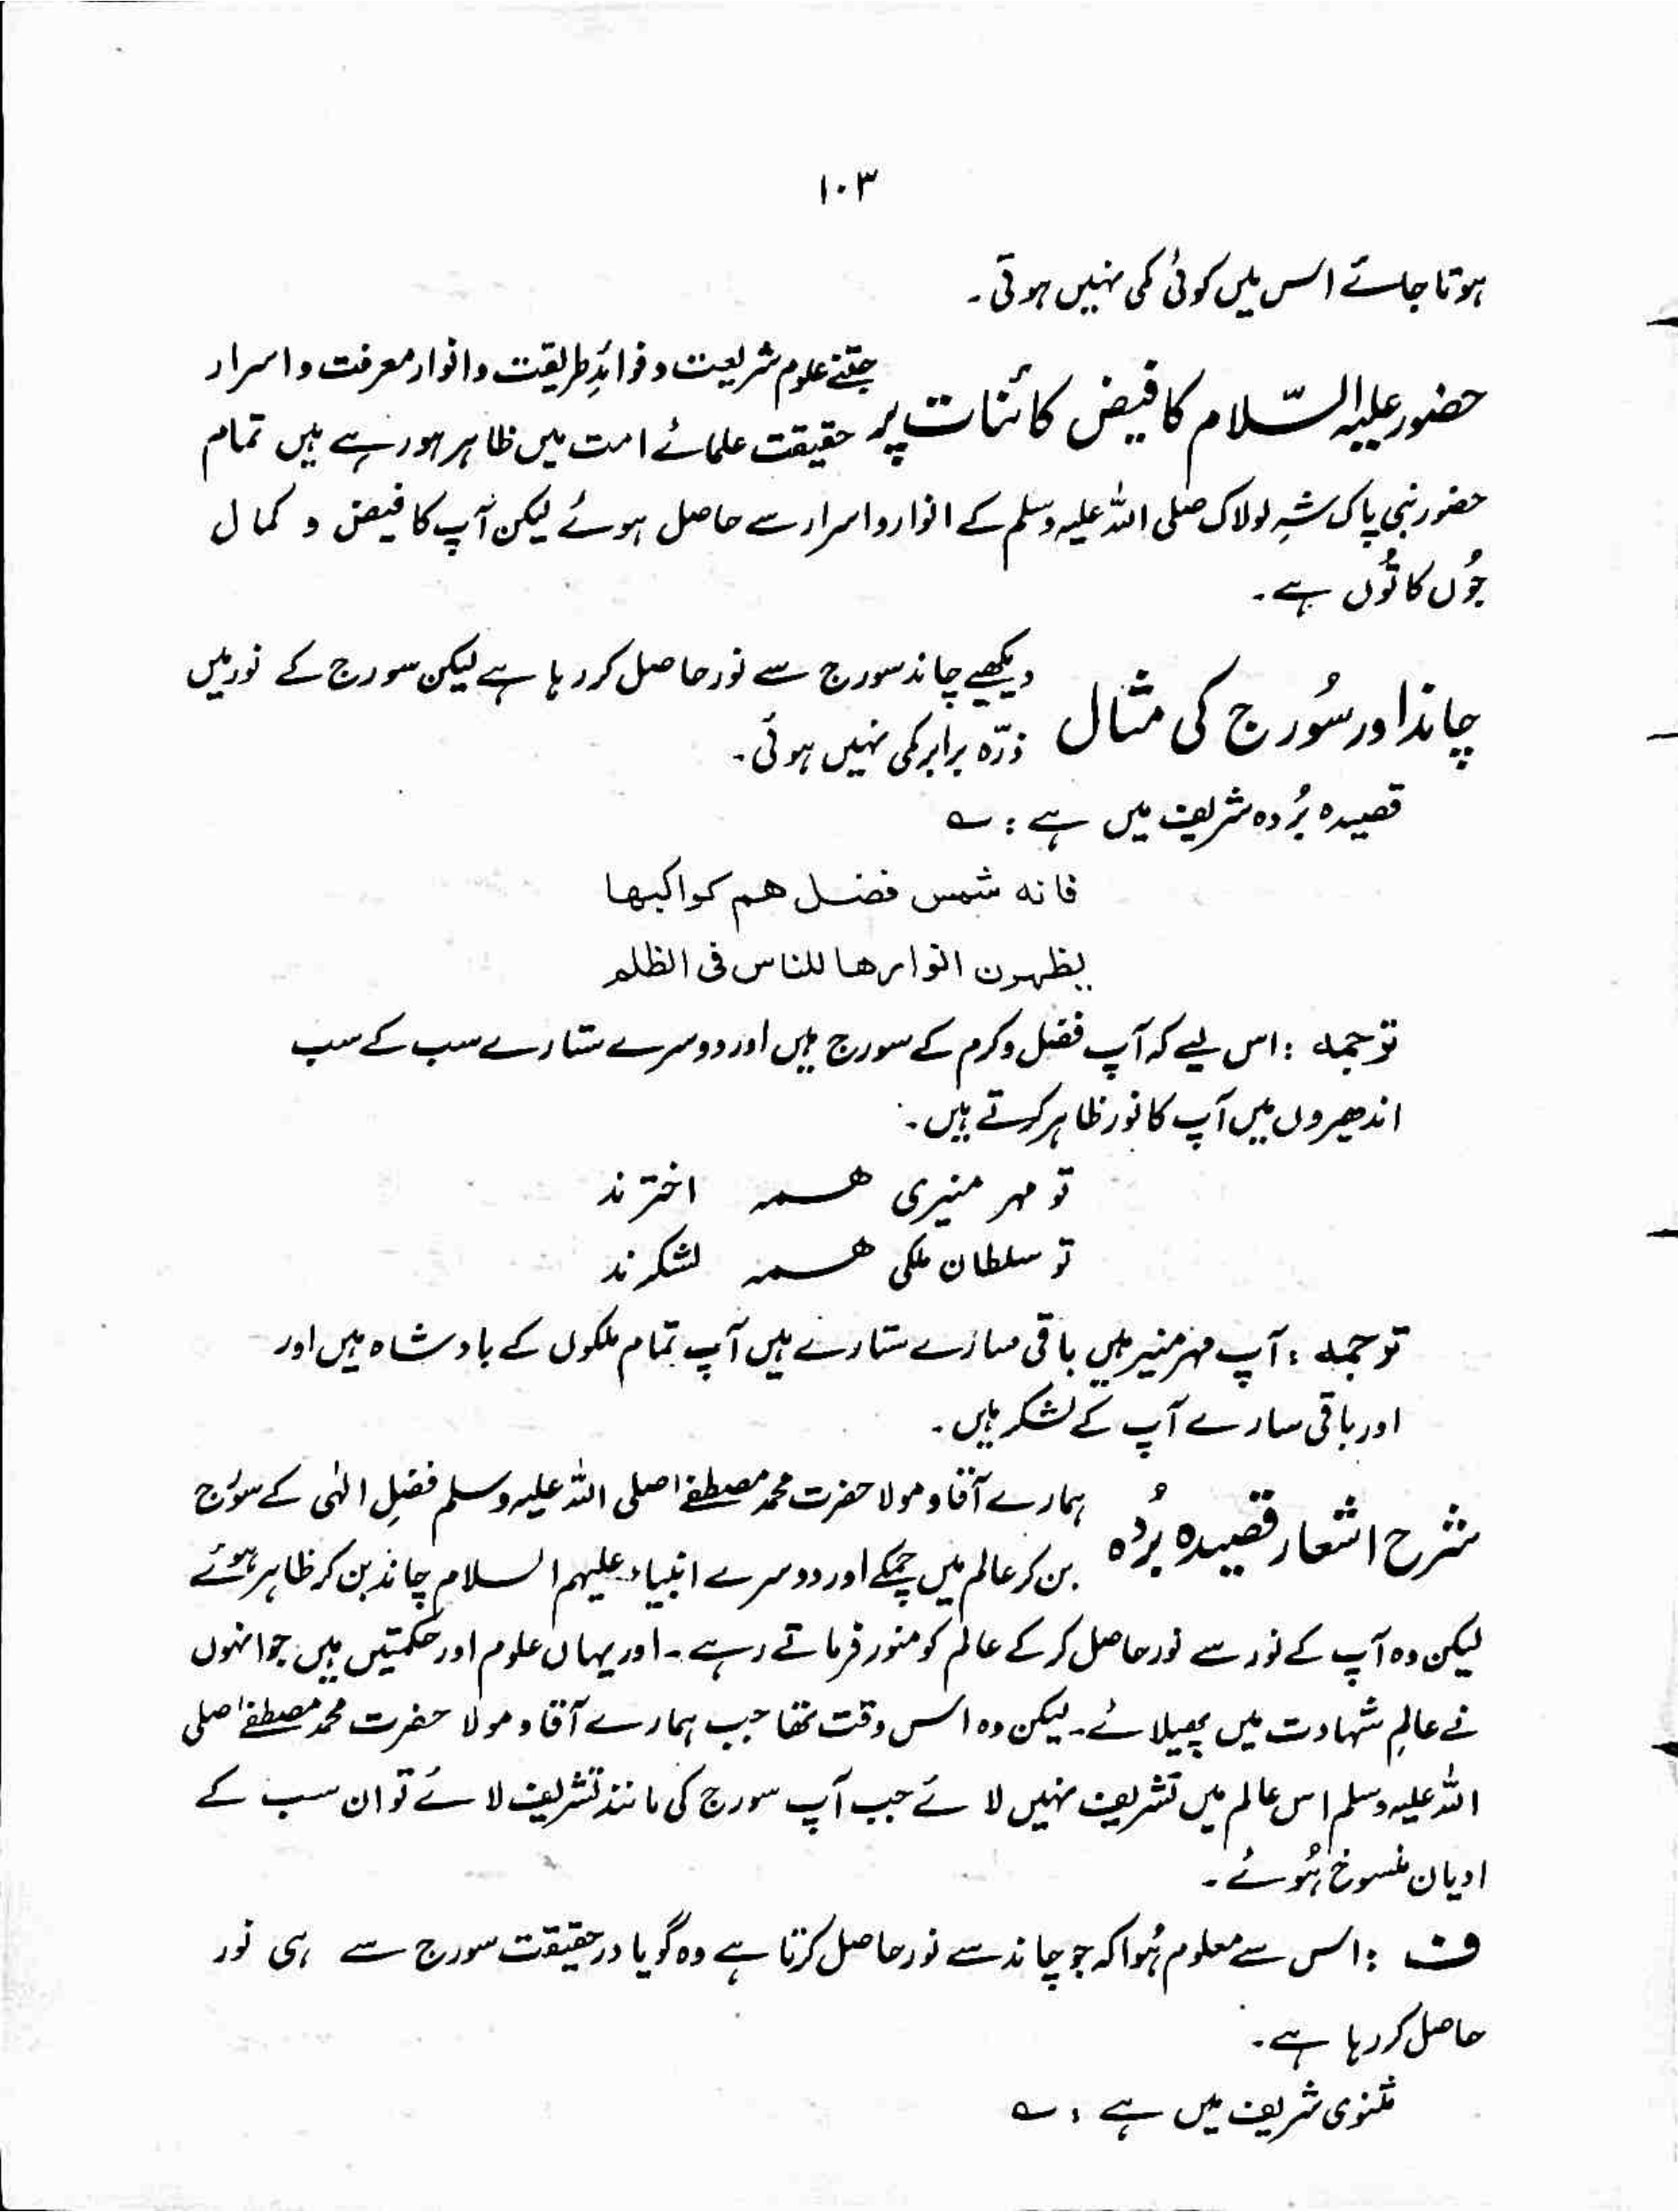 ۱۰۳
ہوتا جائے اس میں کوئی کمی نہیں ہوتی۔
حضور علیہ السّلام کا فیض کائنات پر
جتنے علوم شریعت و فوائدِ طریقت و انوار معرفت و اسرار
حقیقت علمائے امت میں ظاہر ہو رہے ہیں تمام
حضور نبی پاک شہِ لولاک صلی اللہ علیہ وسلم کے انوار و اسرار سے حاصل ہوئے لیکن آپ کا فیض و کمال
جُوں کا تُوں ہے۔
چاند اور سُورج کی مثال
دیکھیے چاند سورج سے نور حاصل کر رہا ہے لیکن سورج کے نور میں
ذرّہ برابر کمی نہیں ہوئی۔
قصیدہ بُردہ شریف میں ہے : ؎
فانه شمس فضل هم کواکبها
یظهرن انوارها للناس فی الظلم
ترجمہ : اس لیے کہ آپ فضل و کرم کے سورج ہیں اور دوسرے ستارے سب کے سب
اندھیروں میں آپ کا نور ظاہر کرتے ہیں۔
تو مہر منیری ہمہ اخترند
تو سلطان ملکی ہمہ لشکرند
ترجمہ : آپ مہر منیر ہیں باقی سارے ستارے ہیں آپ تمام ملکوں کے بادشاہ ہیں اور
اور باقی سارے آپ کے لشکر ہیں۔
شرح اشعار قصیدہ بُردہ
ہمارے آقا و مولا حضرت محمد مصطفےٰ صلی اللہ علیہ وسلم فضلِ الٰہی کے سورج
بن کر عالم میں چمکے اور دوسرے انبیاء علیہم السلام چاند بن کر ظاہر ہوئے
لیکن وہ آپ کے نور سے نور حاصل کر کے عالم کو منور فرماتے رہے۔ اور یہاں علوم اور حکمتیں ہیں جو انہوں
نے عالمِ شہادت میں پھیلائے۔ لیکن وہ اس وقت تھا جب ہمارے آقا و مولا حضرت محمد مصطفےٰ صلی
اللہ علیہ وسلم اس عالم میں تشریف نہیں لائے جب آپ سورج کی مانند تشریف لائے تو ان سب کے
ادیان منسوخ ہُوئے۔
ف : اس سے معلوم ہُوا کہ جو چاند سے نور حاصل کرتا ہے وہ گویا درحقیقت سورج سے ہی نور
حاصل کر رہا ہے۔
مثنوی شریف میں ہے : ؎